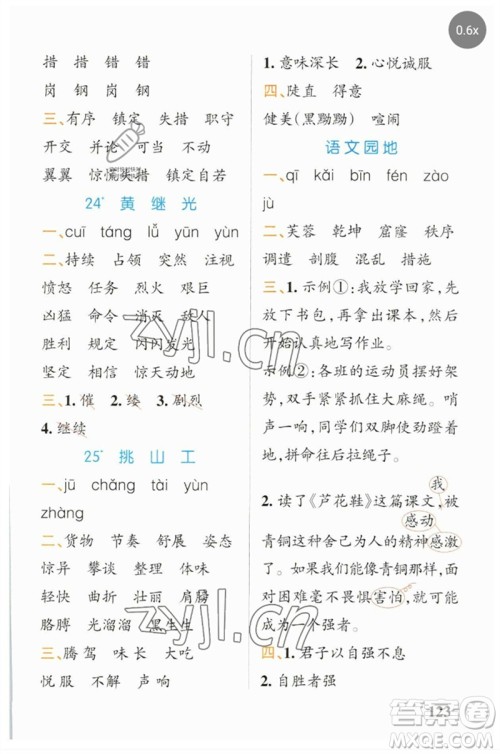 0.6x
措 措 错 错
岗 钢 岗 钢
三、有序 镇定 失措 职守
开交 并论 可当 不动
翼翼 惊慌失措 镇定自若
24* 黄 继 光
一、cuī táng lǚ yūn yùn
二、持续 占领 突然 进攻
愤怒 任务 烈火 艰巨
凶猛 命令 消灭 敌人
胜利 规定 闪闪发光
坚定 相信 惊天动地
三、1. 催 2. 缕 3. 剧烈
4. 继续
25* 挑 山 工
一、jū chǎng tái yùn
zhàng
二、货物 节奏 舒展 姿态
惊异 攀谈 整理 体味
轻快 曲折 垂直 肩膀
胳膊 光溜溜 黑生生
三、腾 驾 味 长 大 吃
悦 服 不 解 声 响
1. 意味深长 2. 心悦诚服
四、陡直 得意
健美(黑黝黝) 喧闹
语文园地
一、qī kǎi bīn fén zào
jù
二、芙蓉 乾坤 窟窿 秩序
调遣 剖腹 混乱 措施
三、1. 示例①:我放学回家,先
放下书包,再拿出课本,然后
开始认真地写作业。
示例②:各班的运动员摆好架
势,双手紧紧抓住绳子。哨
声一响,同学们双脚用力蹬
地,拼命向后拉绳子。
我
2. 读了《芦花鞋》这篇课文,被
感动
青铜不怕苦不怕累的精神感激
了。我们如果能像青铜那样,面
对困难毫不畏惧害怕,就能成
为一个强者。
四、1. 君子以自强不息
2. 自胜者强
123
zyjl.cn
zyjl.cn
答案圈
MXQE.COM